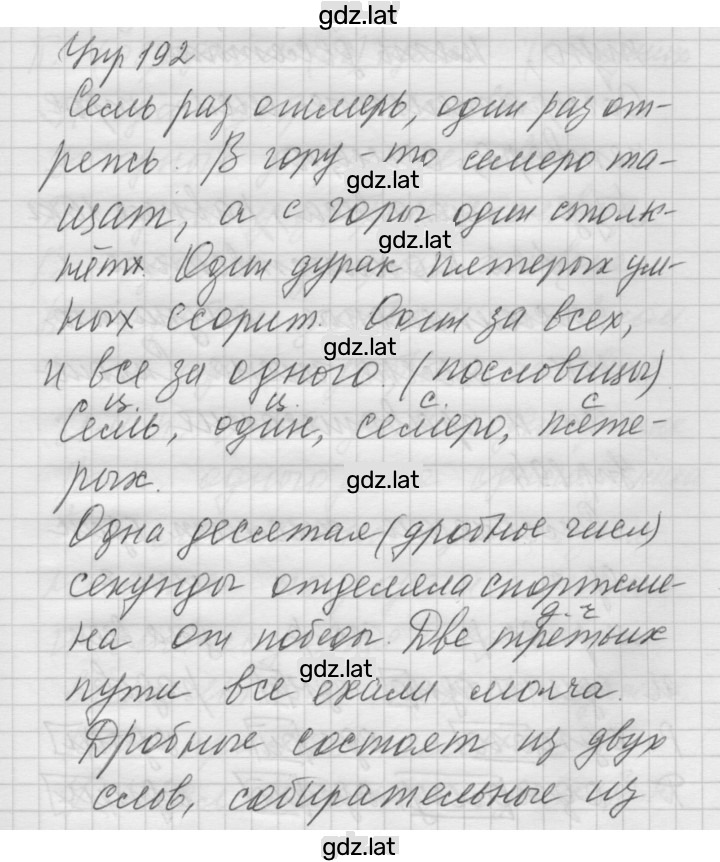 gdz.lat
Упр 192
Семь раз отмерь, один раз от-
режь. В гору-то семеро та-
gdz.lat
щат, а с горы один столк-
gdz.lat
нёт. Один дурак пятерых ум-
ных ссорит. Один за всех,
gdz.lat
и все за одного. (пословицы)
ц. ц. с. с
Семь, один, семеро, пяте-
рых.
gdz.lat
Одна десятая (дробное числ)
секунды отделяла спортсме-
д.ч
на от победы. Две третьих
gdz.lat
пути все ехали молча.
Дробные состоят из двух
слов, собирательные из
gdz.lat